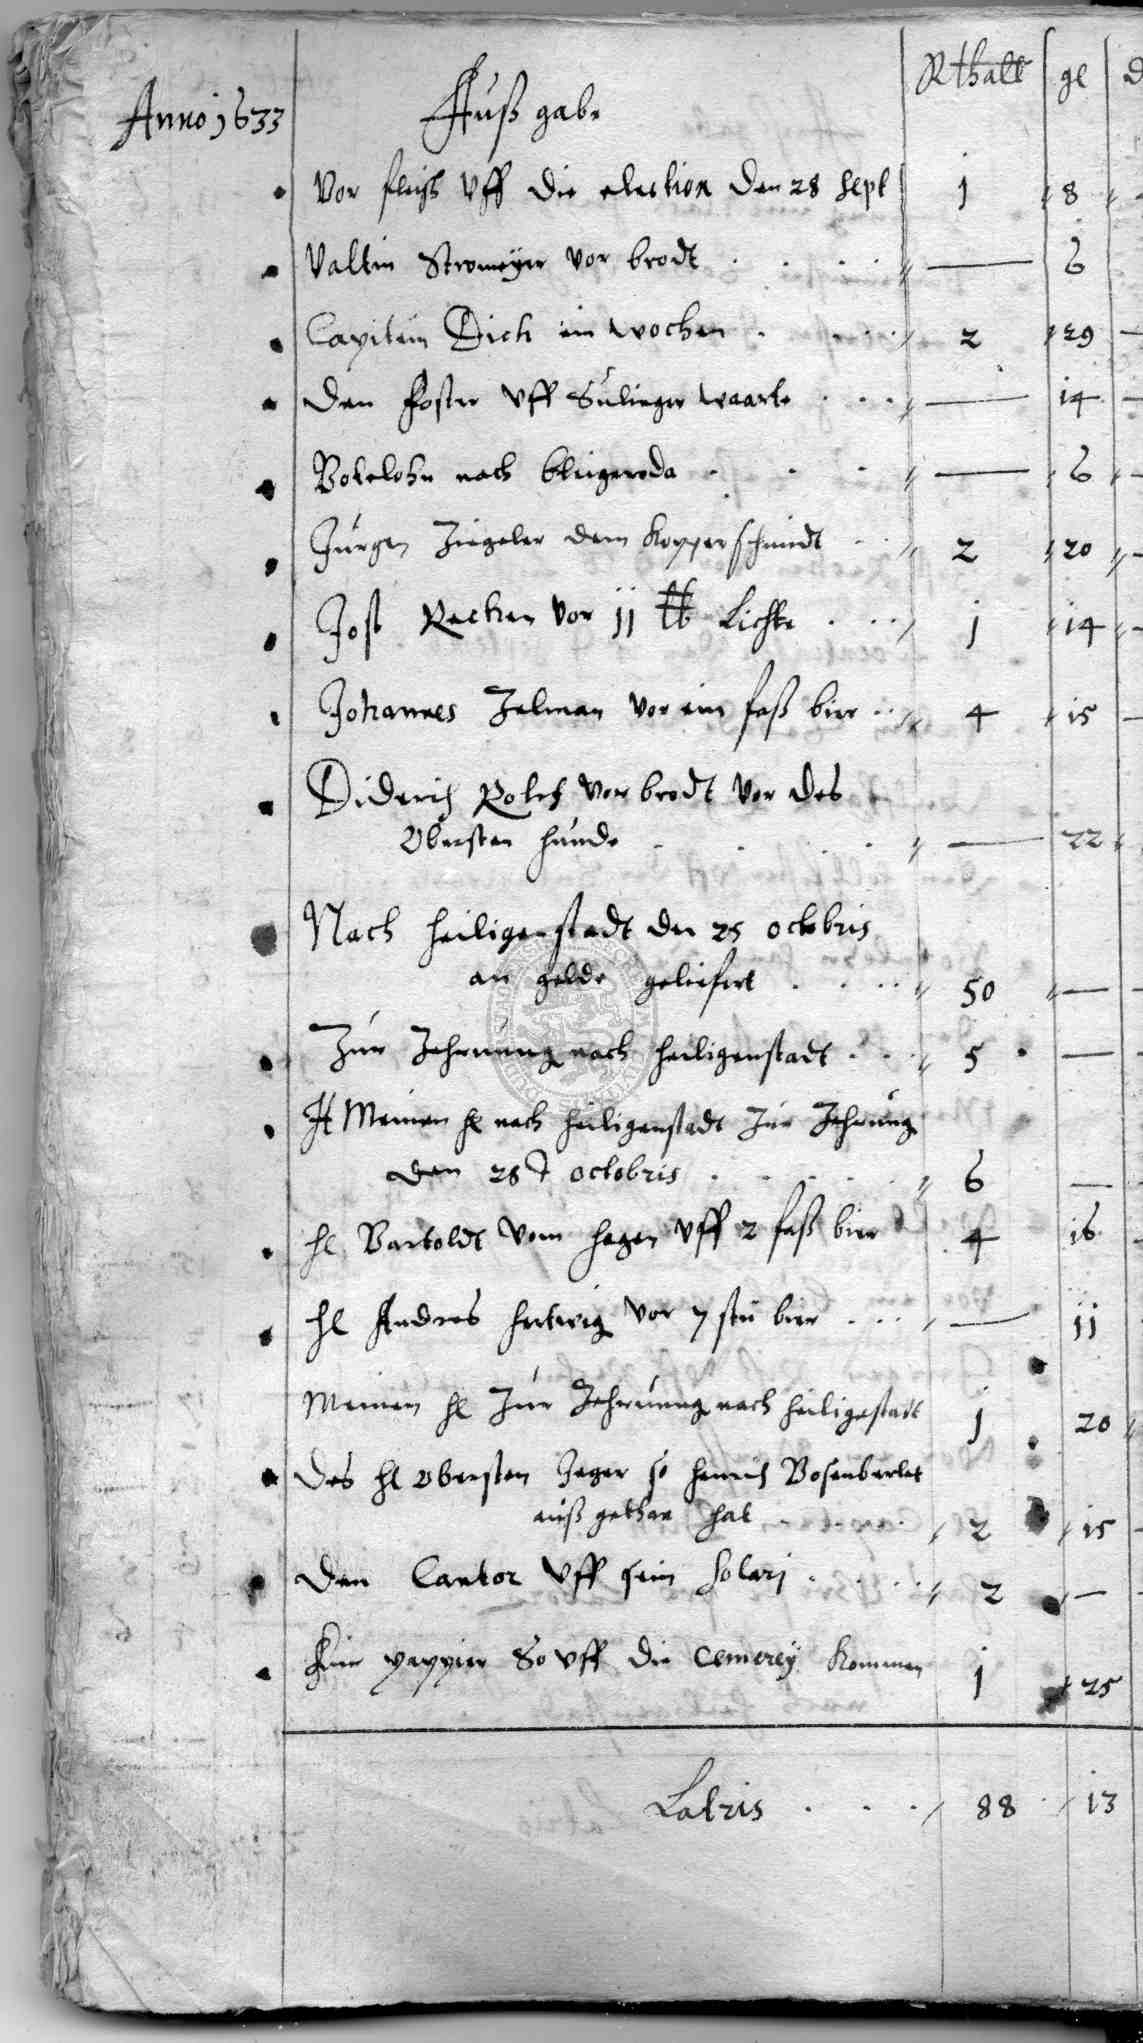 Rthall gl d
Anno 1633 Außgabe
Vor fleisch Uff die election den 28 Sept 1 8
Valtin Stromeÿer vor brodt 6
Capitein Dick ein wochen 2 29
Den Foster Uff Sulinger waarte 14
Bottelohn nach 6
Jurgen Ziegeler dem Kopperschmidt 2 20
Jost Recken vor 11 ℔ Lichte 1 14
Johannes Zelman vor ein faß bier 4 15
Diderich Rolef vor brodt vor des
Obersten hunde 22
Nach heiligenstadt den 25 octobris
an gelde geliefert 50
Zur Zehrunng nach heiligenstadt 5
Meinen hl nach heiligenstadt Zur Zehrung
den 28t octobris 6
hl Bartoldt Vom hagen Uff 2 faß bier 4 16
hl Andres hertwig vor 7 stu bier 11
Meinen hl Zur Zehrunng nach heiligestadt 1 20
Des hl Obersten Jeger so henrich
auß gethan hat 2 15
Den Cantor Uff sein Solari 2
Fur pappier So Uff die Cemereÿ kommen 1 25
Latris 88 13